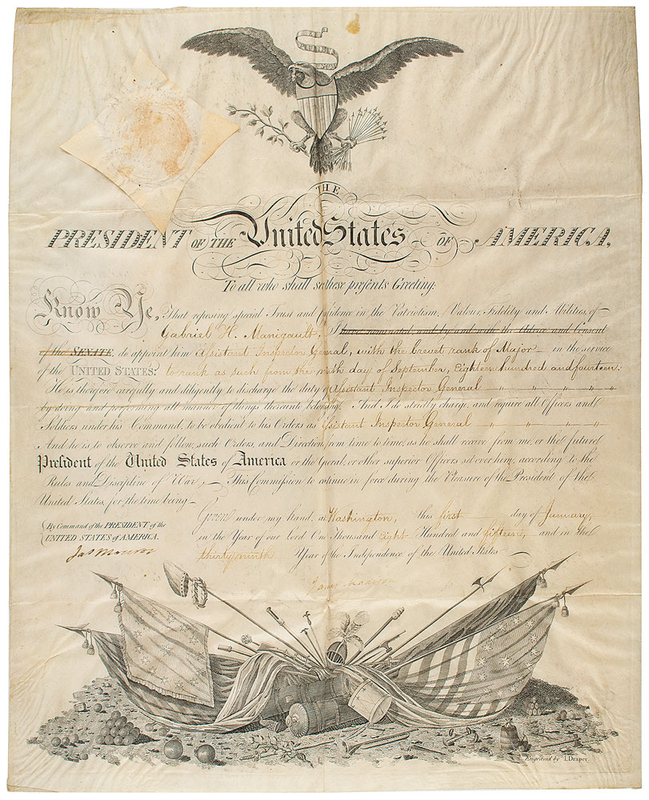 THE
PRESIDENT OF THE United States OF AMERICA,
To all who shall see these presents Greeting:
Know Ye, That reposing special Trust and Confidence in the Patriotism, Valour, Fidelity and Abilities of
Gabriel H. Manigault, I have nominated and by and with the Advice and Consent
of the SENATE, do appoint him Assistant Inspector General, with the brevet rank of Major in the service
of the UNITED STATES: to rank as such from the day of September, Eighteen hundred and fourteen.
He is therefore carefully and diligently to discharge the duty of Assistant Inspector General
by doing and performing all manner of things thereunto belonging. And I do strictly charge, and require all Officers and
Soldiers under his Command, to be obedient to his Orders as Assistant Inspector General
And he is to observe and follow such Orders, and Directions from time to time, as he shall receive from me, or the future
President of the United States of America or the General, or other superior Officers set over him, according to the
Rules and Discipline of War. This Commission to continue in force during the Pleasure of the President of the
United States, for the time being.
Given under my hand, at Washington, this first day of January,
in the Year of our Lord One Thousand Eight Hundred and fifteen, and in the
thirty ninth Year of the Independence of the United States.
By Command of the PRESIDENT of the
UNITED STATES OF AMERICA.
Jas Monroe
James Madison
Engraved by I. Draper